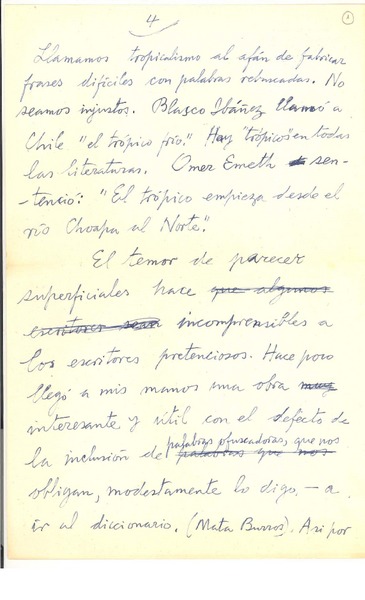 4
Llamamos tropicalismo al afán de fabricar
frases difíciles con palabras rebuscadas. No
seamos injustos. Blasco Ibáñez llamó a
Chile "el trópico frío." Hay "trópicos" en todas
las literaturas. Omer Emeth sen-
-tenció: "El trópico empieza desde el
río Choapa al Norte."
El temor de parecer
superficiales hace que algunos
escritores sean incomprensibles a
los escritores pretenciosos. Hace poco
llegó a mis manos una obra muy
interesante y útil con el defecto de
palabras ofuscadoras, que nos
la inclusión de palabras que nos
obligan, modestamente lo digo, - a
ir al diccionario. (Mata Burros). Asi por